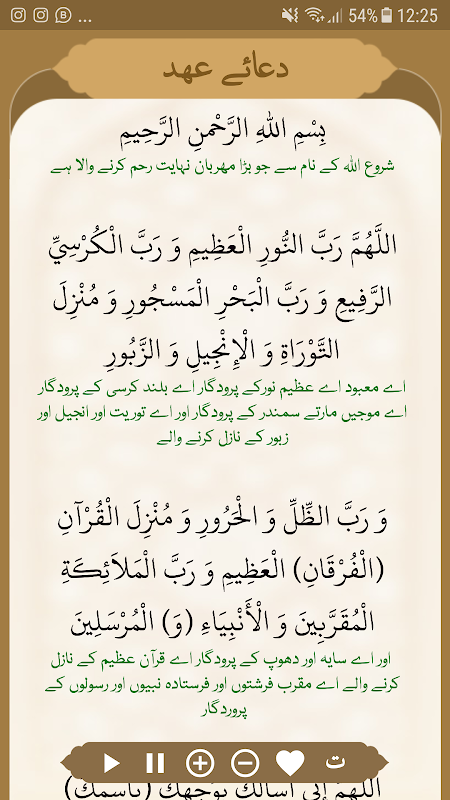 ... 54% 12:25
دعائے عهد
بِسْمِ اللهِ الرَّحْمنِ الرَّحِيمِ
شروع الله کے نام سے جو بڑا مهربان نہایت رحم کرنے والا ہے
اللَّهُمَّ رَبَّ النُّورِ الْعَظِيمِ وَ رَبَّ الْكُرْسِيِّ
الرَّفِيعِ وَ رَبَّ الْبَحْرِ الْمَسْجُورِ وَ مُنْزِلَ
التَّوْرَاةِ وَ الْإِنْجِيلِ وَ الزَّبُورِ
اے معبود اے عظیم نورکے پرودگار اے بلند کرسی کے پرودگار
اے موجیں مارتے سمندر کے پرودگار اور اے توریت اور انجیل اور
زبور کے نازل کرنے والے
وَ رَبَّ الظِّلِّ وَ الْحَرُورِ وَ مُنْزِلَ الْقُرْآنِ
(الْفُرْقَانِ) الْعَظِيمِ وَ رَبَّ الْمَلاَئِكَةِ
الْمُقَرَّبِينَ وَ الْأَنْبِيَاءِ (وَ) الْمُرْسَلِينَ
اور اے سایہ اور دھوپ کے پرودگار اے قرآن عظیم کے نازل
کرنے والے اے مقرب فرشتوں اور فرستادہ نبیوں اور رسولوں کے
پروردگار
ت